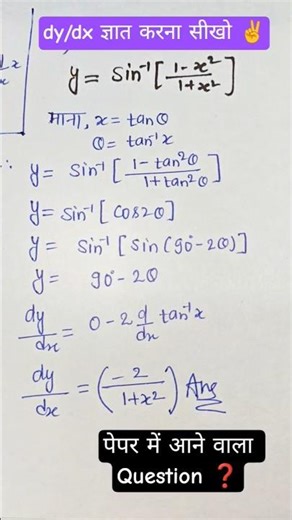 dy/dx ज्ञात करना सीखो ✌️
y = Sin⁻¹[(1-x²)/(1+x²)]
माना, x = tanθ
θ = tan⁻¹x
∴ y = Sin⁻¹[(1-tan²θ)/(1+tan²θ)]
y = Sin⁻¹[Cos2θ]
y = Sin⁻¹[Sin(90°-2θ)]
y = 90°-2θ
dy/dx = 0-2 d/dx tan⁻¹x
dy/dx = (-2/(1+x²)) Ans
पेपर में आने वाला
Question ❓